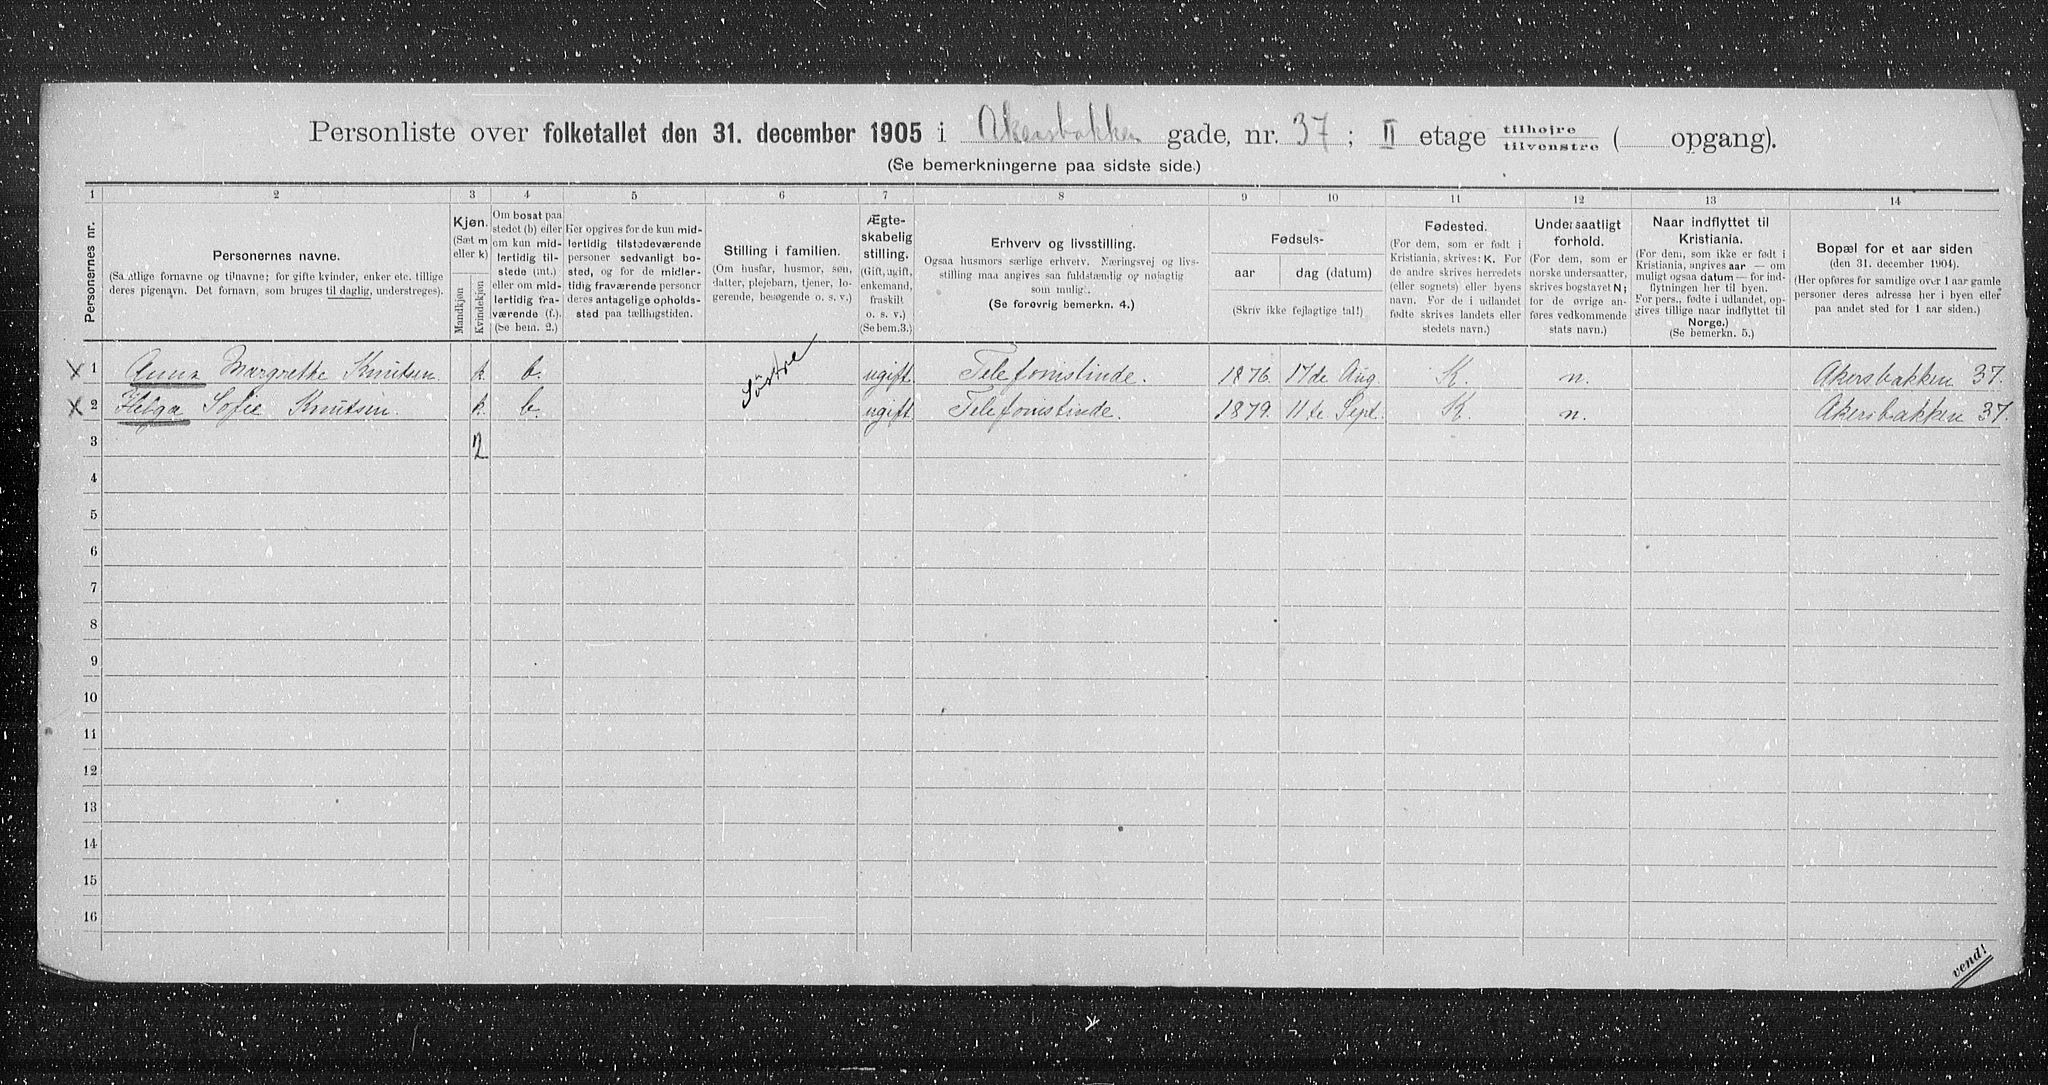 Personliste over folketallet den 31. december 1905 i Akersbakken gade, nr. 37; II etage tilhøjre / tilvenstre ( opgang).
(Se bemerkningerne paa sidste side.)
1 2 3 4 5 6 7 8 9 10 11 12 13 14
Personernes nr.
Personernes navne.
(Samtlige fornavne og tilnavne; for gifte kvinder, enker etc. tillige
deres pigenavn. Det fornavn, som bruges til daglig, understreges).
Kjøn.
(Sæt m
eller k)
Mandkjøn
Kvindekjøn
Om bosat paa
stedet (b) eller
om kun mid-
lertidig til-
stede (mt.)
eller om mid-
lertidig fra-
værende (f.).
(Se bem. 2.)
Her opgives for de kun mid-
lertidig tilstedeværende
personer sedvanligt bo-
sted, og for de midler-
tidig fraværende personer
deres antagelige opholds-
sted paa tællingstiden.
Stilling i familien.
(Om husfar, husmor, søn,
datter, plejebarn, tjener, lo-
gerende, besøgende o. s. v.)
Ægte-
skabelig
stilling.
(Gift, ugift,
enkemand,
fraskilt
o. s. v.)
(Se bem. 3.)
Erhverv og livsstilling.
Ogsaa husmors særlige erhverv. Næringsvej og livs-
stilling maa angives saa fuldstændig og nøjagtig
som mulig.
(Se forøvrig bemerkn. 4.)
Fødsels-
aar dag (datum)
(Skriv ikke fejlagtige tal!)
Fødested.
(For dem, som er født i
Kristiania, skrives: K. For
de andre skrives herredets
(eller sognets) eller byens
navn. For de i udlandet
fødte skrives landets eller
stedets navn.)
Undersaatligt
forhold.
(For dem, som er
norske undersaatter,
skrives bogstavet N;
for de øvrige an-
føres vedkommende
stats navn.)
Naar indflyttet til
Kristiania.
(For dem, som ikke er født i
Kristiania, angives aar — om
muligt ogsaa datum — for ind-
flytningen her til byen.
For pers., fødte i udlandet, op-
gives tillige naar indflyttet til
Norge.)
(Se bemerkn. 5.)
Bopæl for et aar siden
(den 31. december 1904).
(Her opføres for samtlige over 1 aar gamle
personer deres adresse her i byen eller
paa andet sted for 1 aar siden.)
X 1 Anna Margrethe Knutsen. k. b. Søstre ugift. Telefonistinde. 1876. 17de Aug. K. n. Akersbakken 37.
X 2 Helga Sofie Knutsen. k. b. ugift. Telefonistinde. 1879. 11te Sept. K. n. Akersbakken 37.
3 2
4
5
6
7
8
9
10
11
12
13
14
15
16
vend!